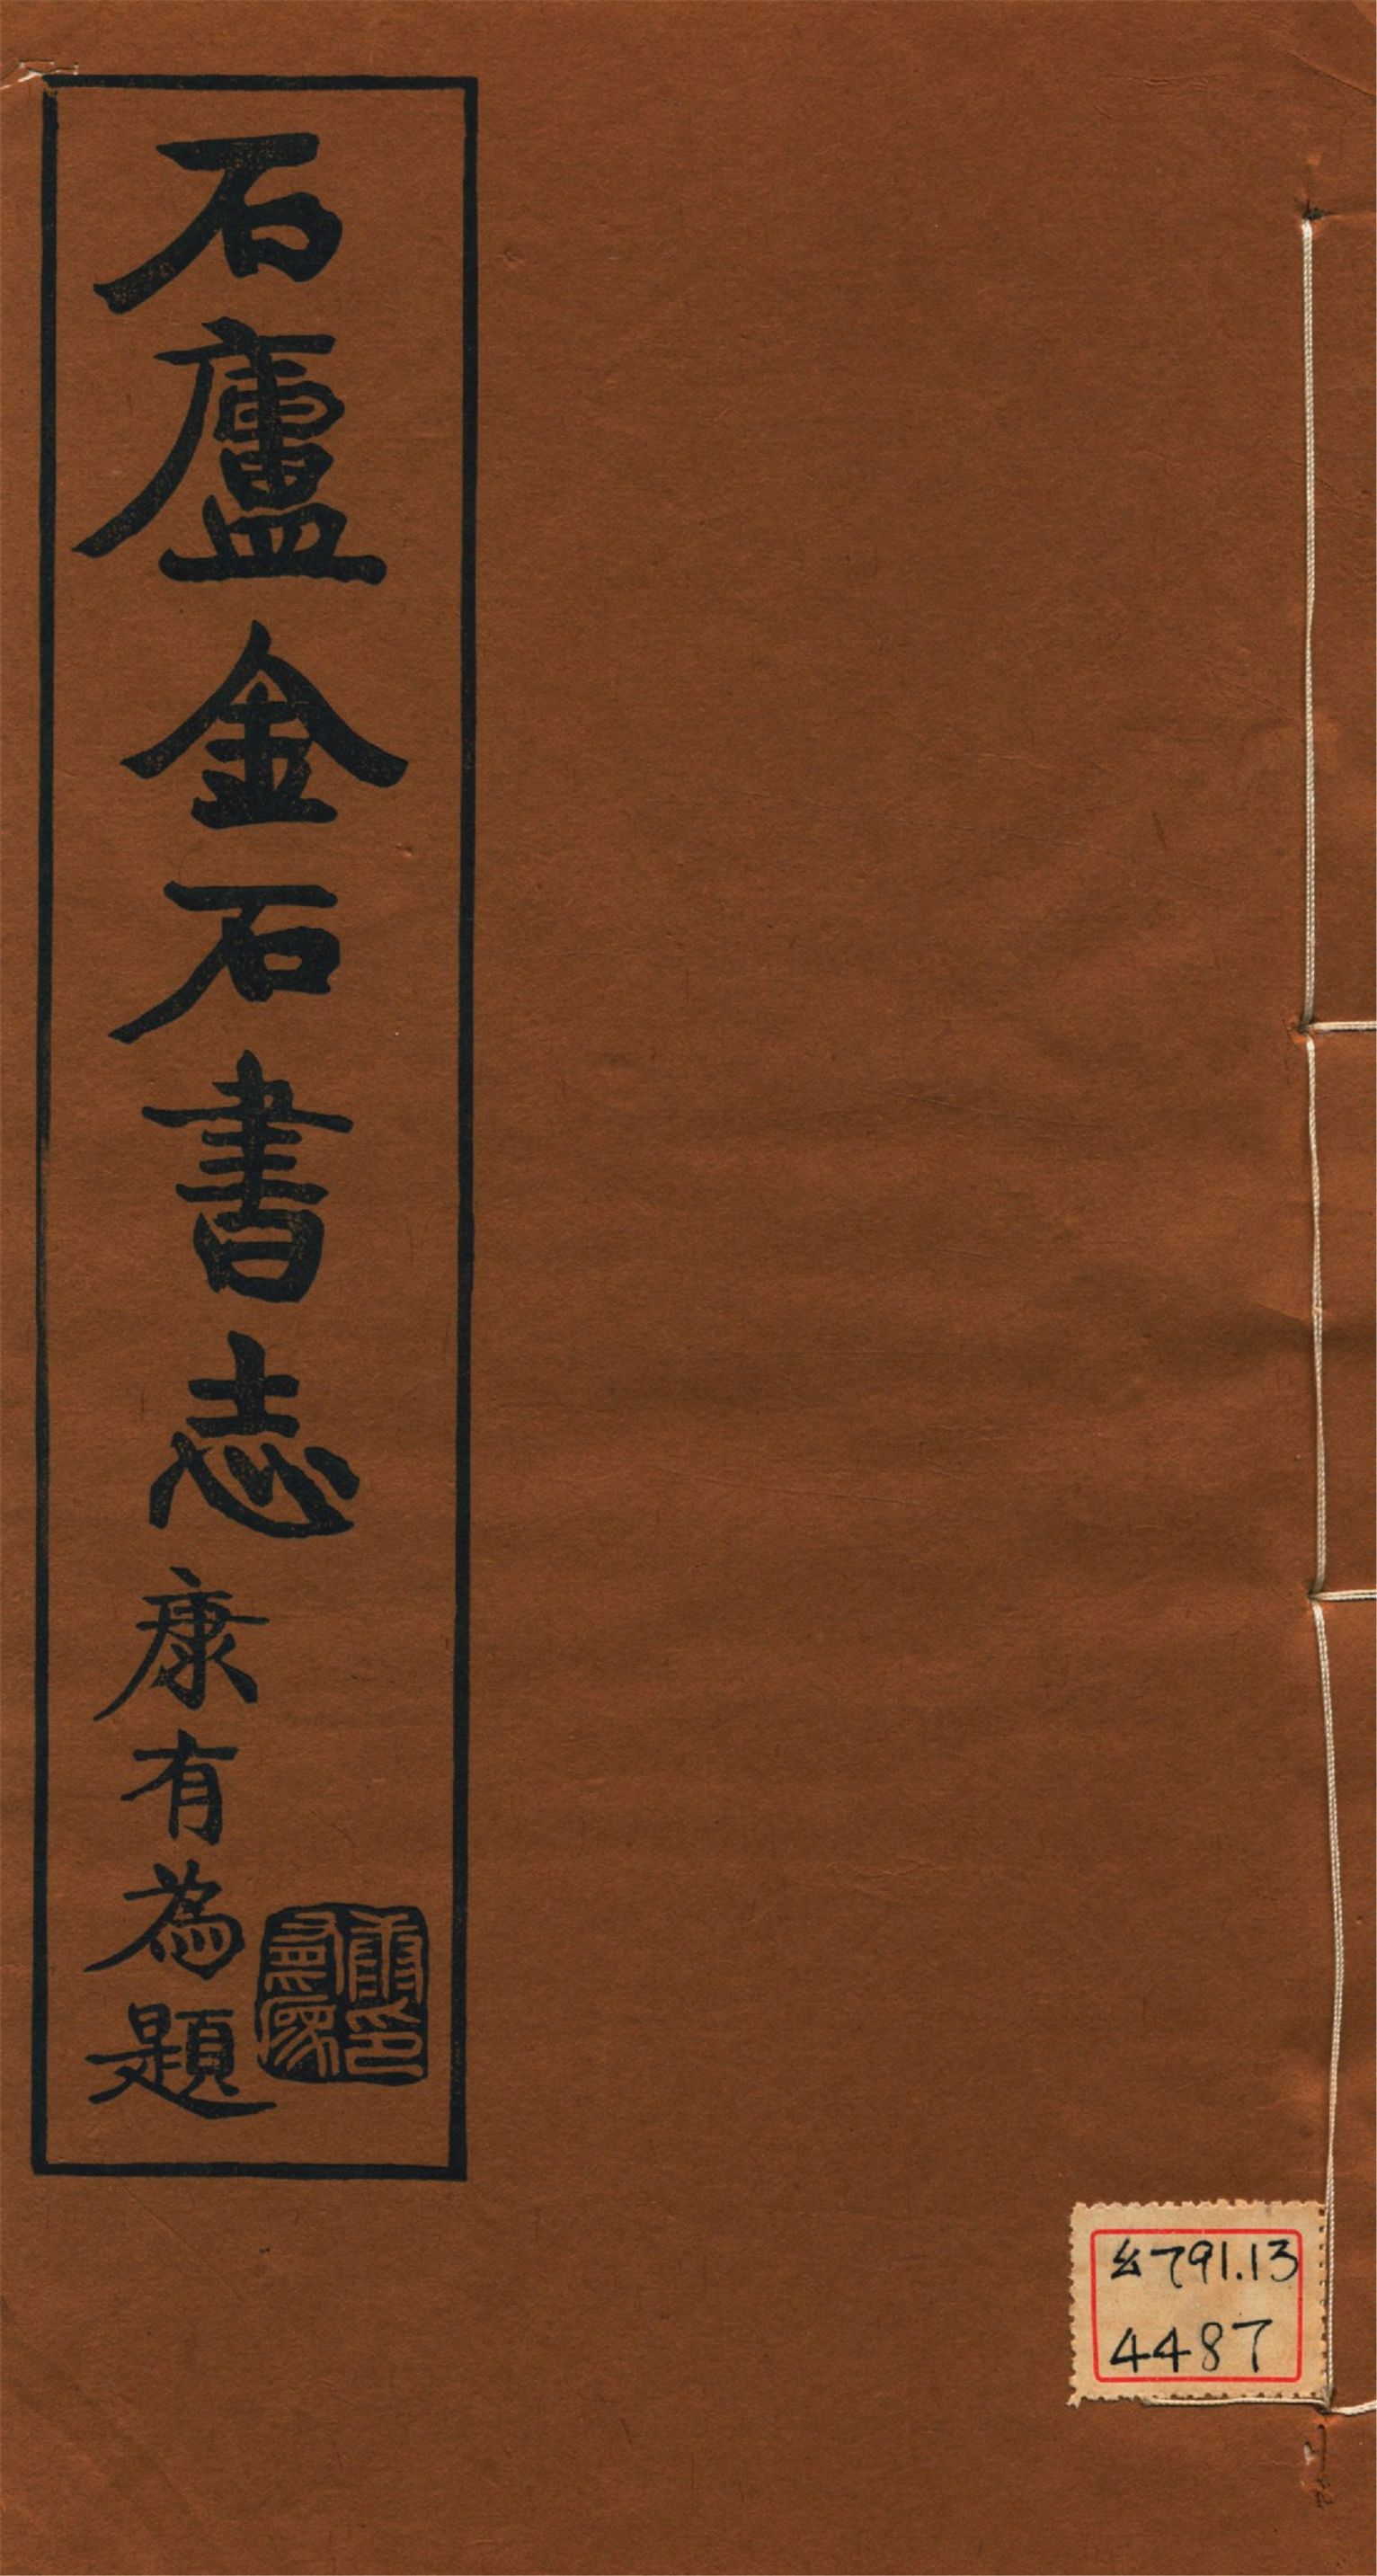 石廬金石書志
康有為題
康有為印
幺791.13
4487